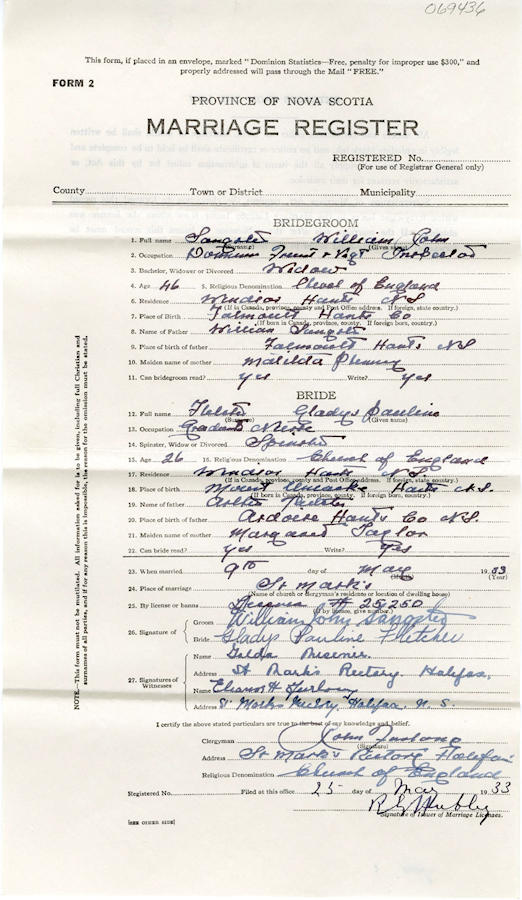 069436
This form, if placed in an envelope, marked "Dominion Statistics—Free, penalty for improper use $300," and
properly addressed will pass through the Mail "FREE."
FORM 2
PROVINCE OF NOVA SCOTIA
MARRIAGE REGISTER
REGISTERED No.
(For use of Registrar General only)
County Town or District Municipality
BRIDEGROOM
1. Full name Sangster William John
(Surname) (Given name)
2. Occupation Dominion Fruit & Vegt Inspector
3. Bachelor, Widower or Divorced Widower
4. Age 46 5. Religious Denomination Church of England
6. Residence Windsor Hants N.S.
(If in Canada, province, county and Post Office address. If foreign, state country.)
7. Place of Birth Falmouth Hants Co
(If born in Canada, province, county. If foreign born, country.)
8. Name of Father William Sangster
9. Place of birth of father Falmouth Hants N.S
10. Maiden name of mother Matilda
11. Can bridegroom read? yes Write? yes
BRIDE
12. Full name Fletcher Gladys Pauline
(Surname) (Given name)
13. Occupation Graduate Nurse
14. Spinster, Widow or Divorced Spinster
15. Age 26 16. Religious Denomination Church of England
17. Residence Windsor Hants N.S.
(If in Canada, province, county and Post Office address. If foreign, state country.)
18. Place of birth Mount Uniacke Hants N.S.
(If born in Canada, province, county. If foreign born, country.)
19. Name of father Fletcher
20. Place of birth of father Ardoise Hants Co N.S.
21. Maiden name of mother Margaret Taylor
22. Can bride read? yes Write? Yes
23. When married 9th day of May 1933
(Month) (Year)
24. Place of marriage St Mark's
(Name of church or clergyman's residence or location of dwelling house)
25. By license or banns License # 25250
(If by license, give number.)
26. Signature of
Groom William John Sangster
Bride Gladys Pauline Fletcher
27. Signatures of Witnesses
Name
Address St Mark's Rectory Halifax.
Name Eleanor H Furlong
Address St Mark's Rectory, Halifax, N. S.
I certify the above stated particulars are true to the best of my knowledge and belief.
Clergyman John Furlong
(Signature)
Address St Mark's Rectory Halifax
Religious Denomination Church of England
Registered No. Filed at this office 25 day of May 1933
Signature of Issuer of Marriage Licenses.
[SEE OTHER SIDE]
NOTE.—This form must not be mutilated. All information asked for is to be given, including full Christian and
surnames of all parties, and if for any reason this is impossible, the reason for the omission must be stated.